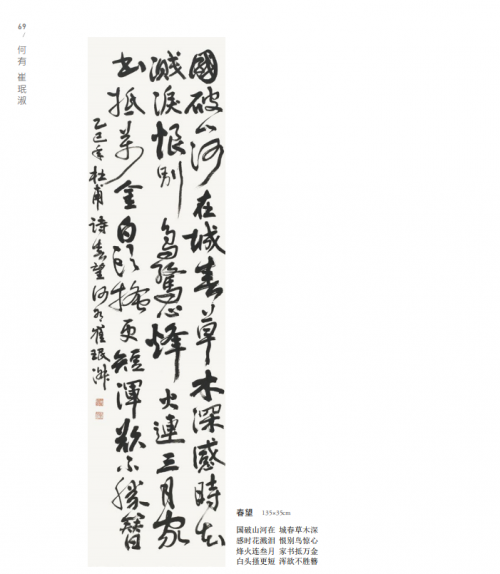 69
/
何有 崔珉淑
國破山河在城春草木深感時花
濺淚恨別鳥驚心烽火連三月家
書抵萬金白頭搔更短渾欲不勝簪
乙巳年杜甫詩春望何有崔珉淑
春望 135×35cm
国破山河在 城春草木深
感时花溅泪 恨别鸟惊心
烽火连叁月 家书抵万金
白头搔更短 浑欲不胜簪